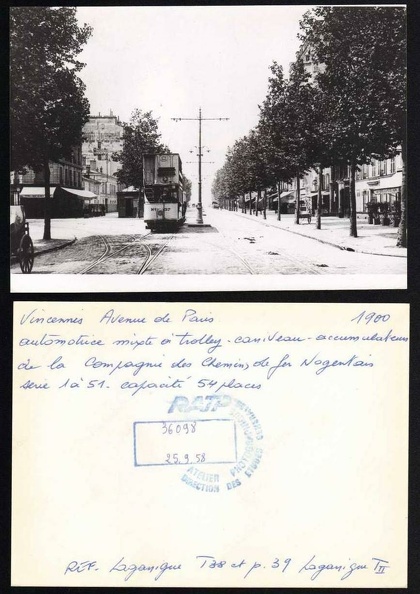 Vincennes Avenue de Paris 1900
automotrice mixte à trolley - caniveau - accumulateurs
de la Compagnie des Chemins de fer Nogentais
serie 1 à 51. capacité 54 places
RATP
36098
25.9.58
ATELIER PHOTOGRAPHIQUE
DIRECTION DES ETUDES
REF. Lagarrigue T38 et p. 39 Lagarrigue TII